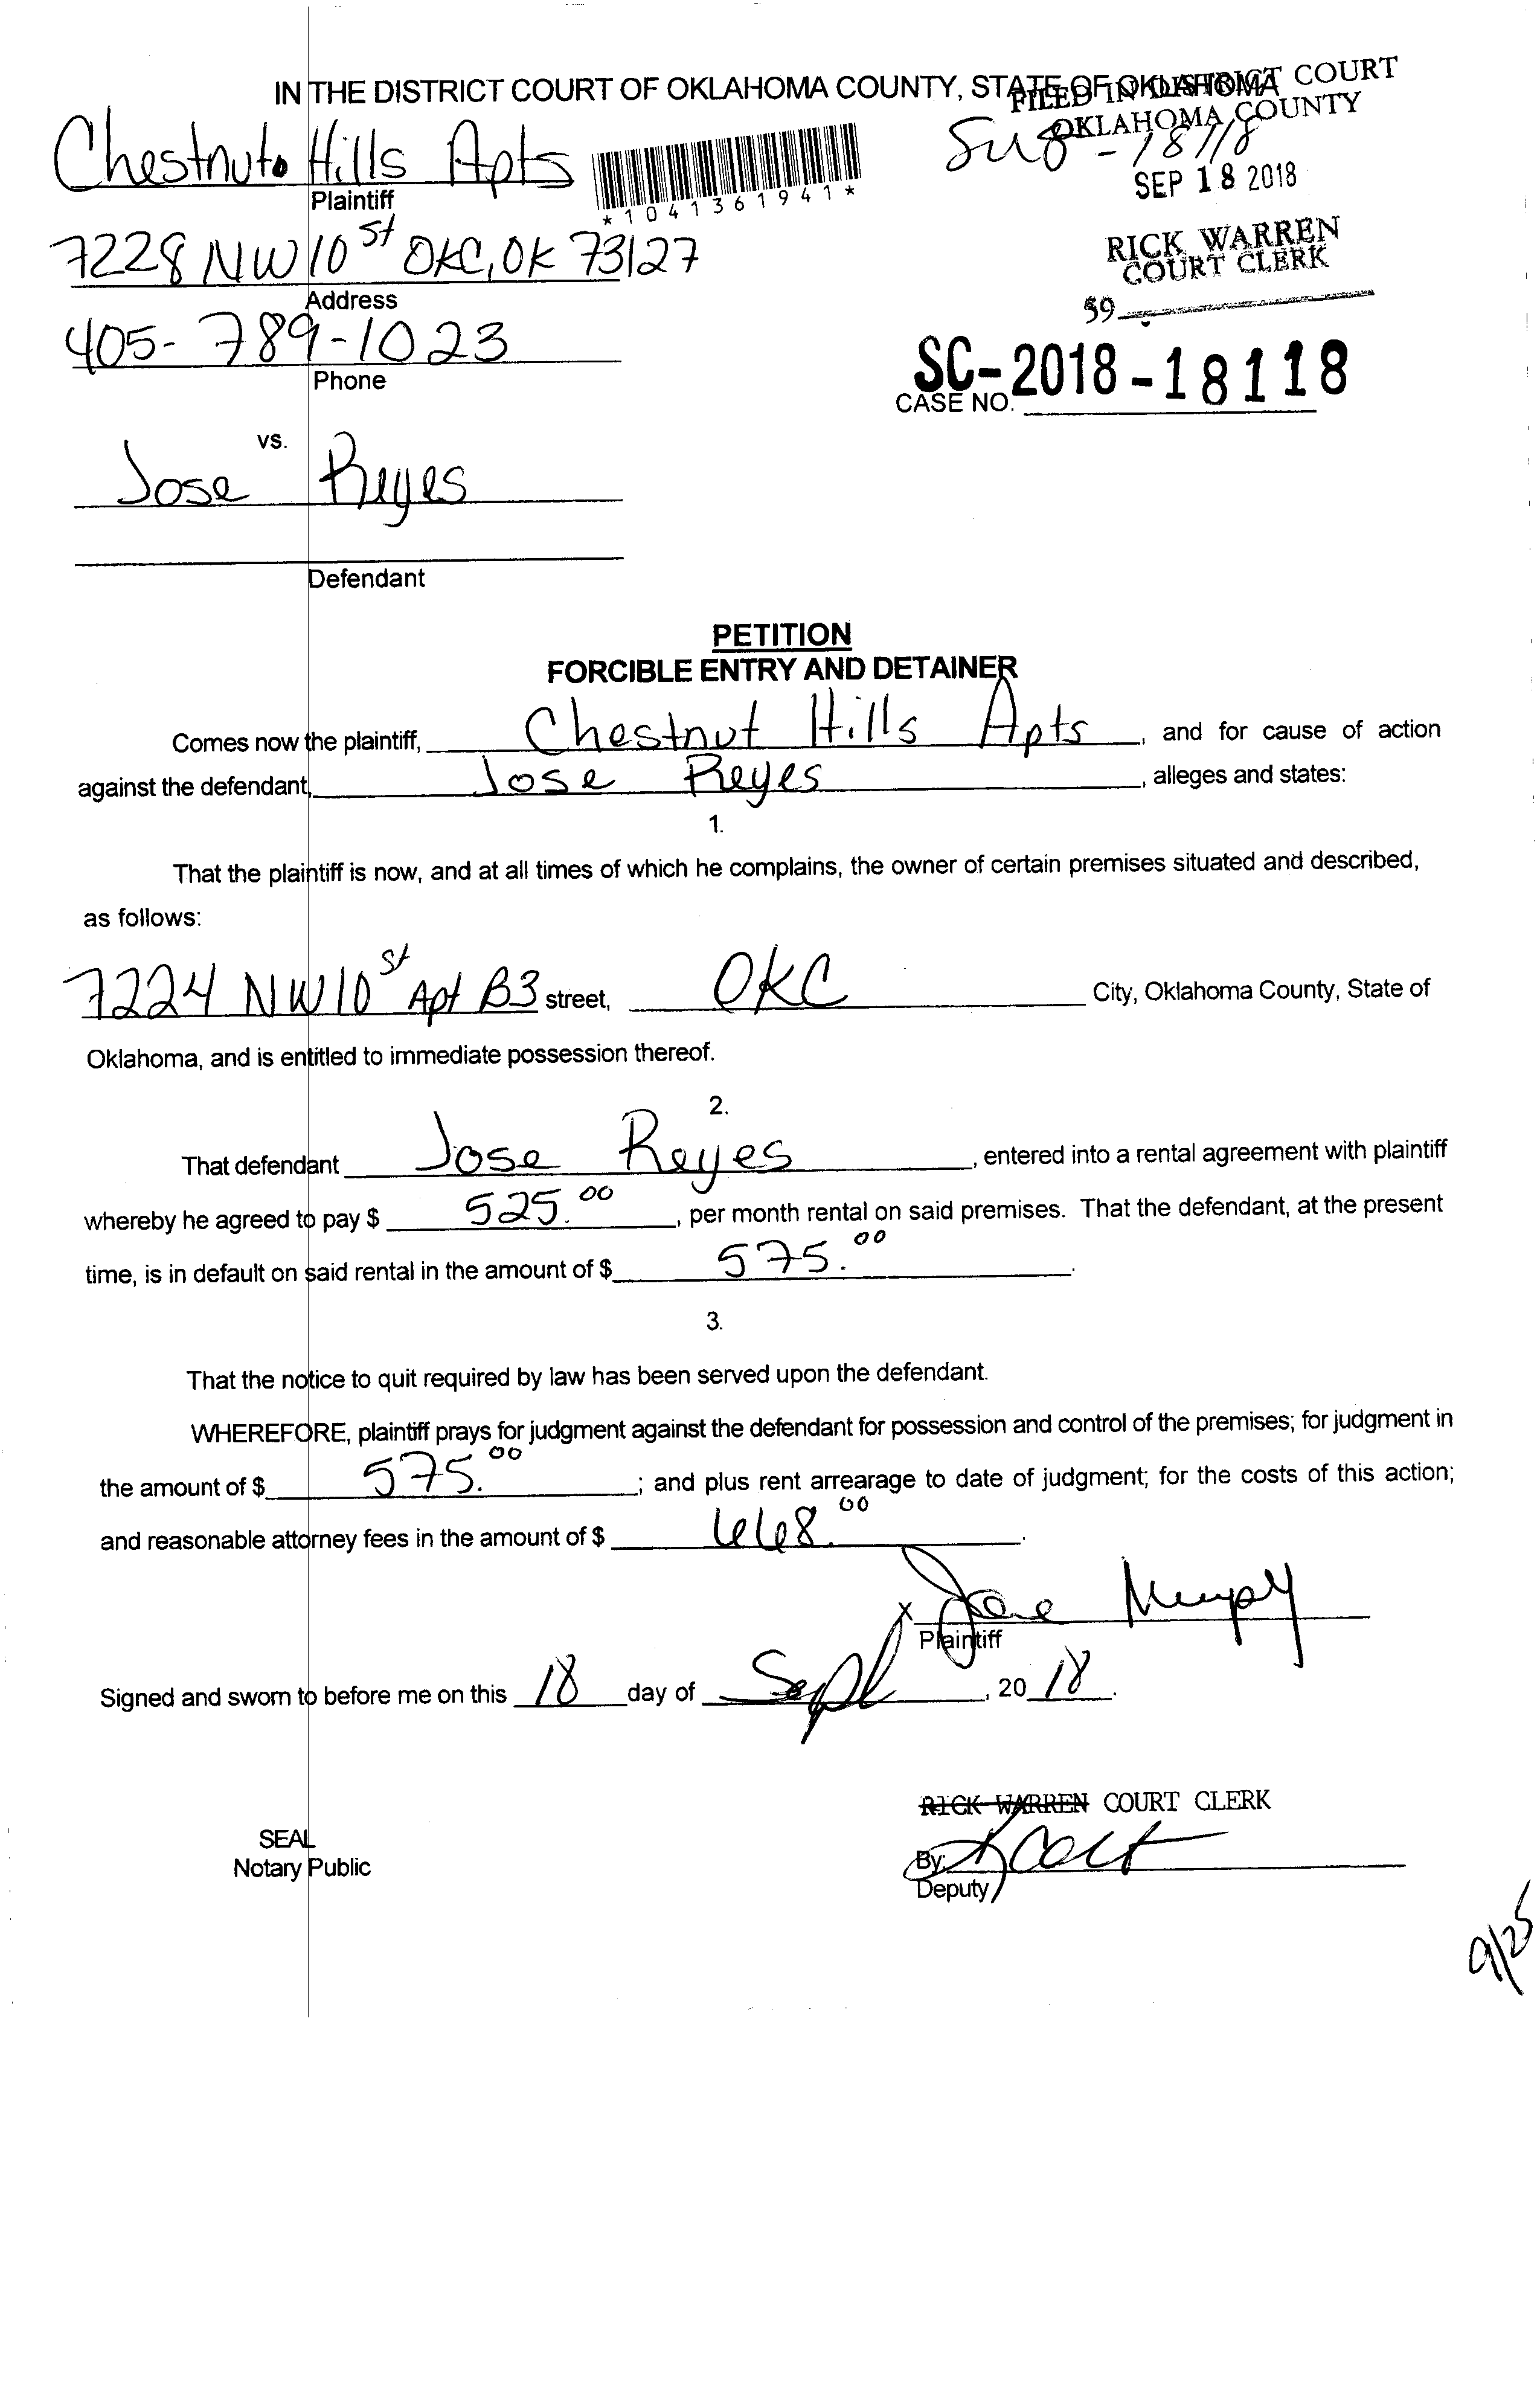 IN THE DISTRICT COURT OF OKLAHOMA COUNTY, STATE OF OKLAHOMA
FILED IN DISTRICT COURT
OKLAHOMA COUNTY
Chestnut Hills Apts
- 18118
SEP 18 2018
Plaintiff
*1041361941*
7228 NW 10 st OKC, OK 73127
RICK WARREN
COURT CLERK
Address
59
405-789-1023
Phone
SC-2018-18118
CASE NO.
vs.
Jose Reyes
Defendant
PETITION
FORCIBLE ENTRY AND DETAINER
Comes now the plaintiff, Chestnut Hills Apts, and for cause of action
against the defendant, Jose Reyes, alleges and states:
1.
That the plaintiff is now, and at all times of which he complains, the owner of certain premises situated and described,
as follows:
7224 NW 10 st Apt B3 street, OKC City, Oklahoma County, State of
Oklahoma, and is entitled to immediate possession thereof.
2.
That defendant Jose Reyes, entered into a rental agreement with plaintiff
whereby he agreed to pay $ 525.00, per month rental on said premises. That the defendant, at the present
time, is in default on said rental in the amount of $ 575.00.
3.
That the notice to quit required by law has been served upon the defendant.
WHEREFORE, plaintiff prays for judgment against the defendant for possession and control of the premises; for judgment in
the amount of $ 575.00; and plus rent arrearage to date of judgment; for the costs of this action;
and reasonable attorney fees in the amount of $ 668.00.
X
Plaintiff
Signed and sworn to before me on this 18 day of Sept, 2018.
RICK WARREN COURT CLERK
SEAL
Notary Public
By:
Deputy
9/25